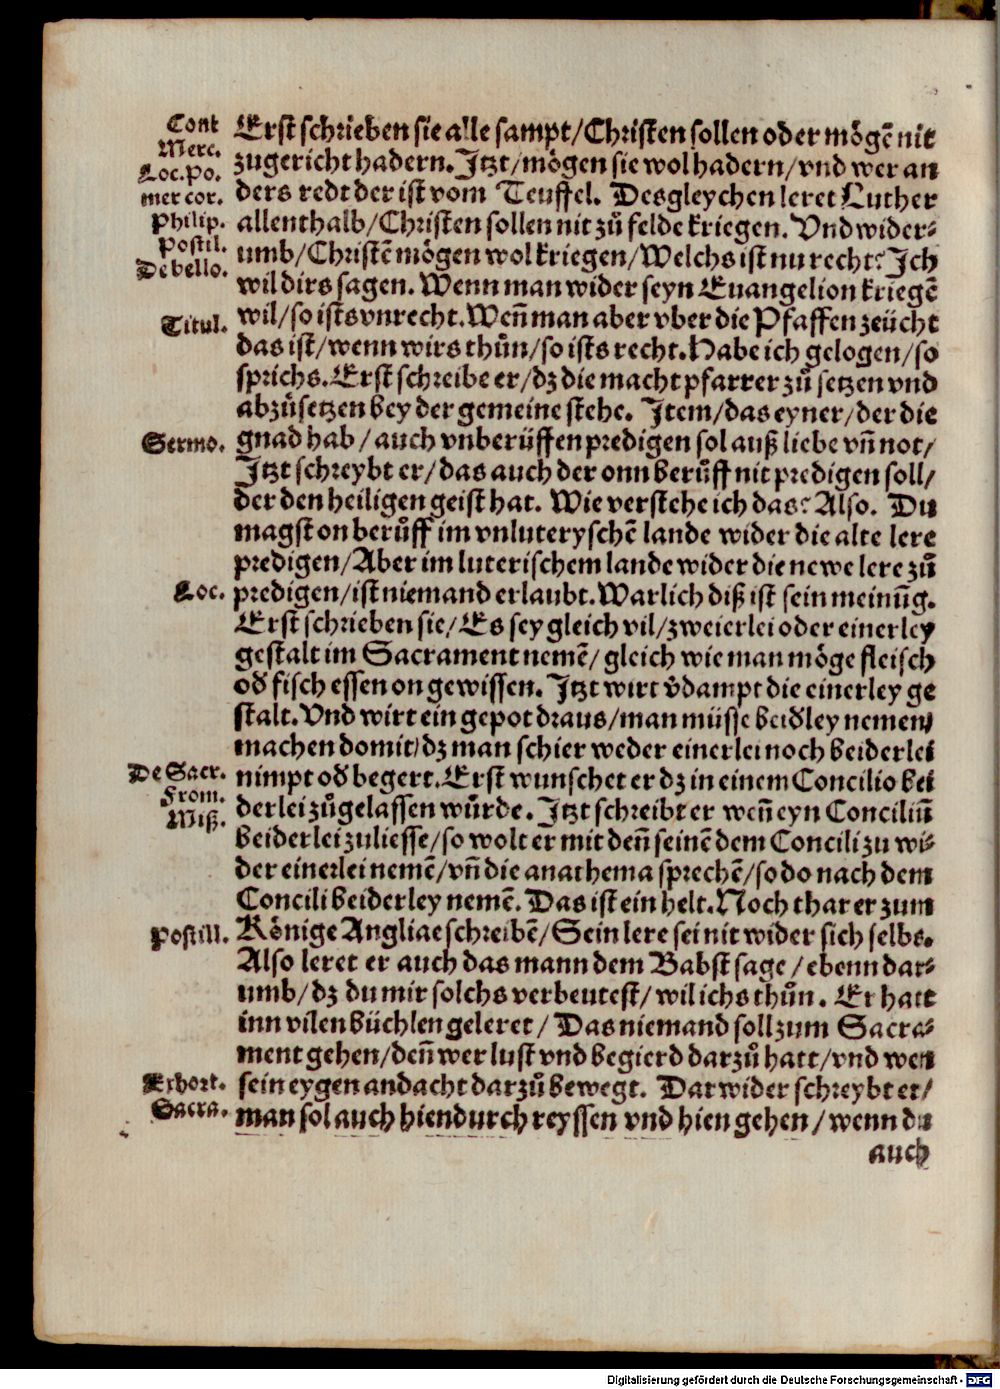 Cont
Merc.
Loc. po.
mer cor.
Philip.
Postil.
De bello.
Titul.
Sermo.
Loc.
De Sacr.
From.
Miß.
Postill.
Exhort.
Sacra.
Erst schrieben sie alle sampt/Christen sollen oder mögẽ nit
zu gericht hadern. Jtzt/mögen sie wol hadern/vnd wer an
ders redt der ist vom Teuffel. Desgleychen leret Luther
allenthalb/Christen sollen nit zů felde kriegen. Vnd wider⸗
umb/Christẽ mögen wol kriegen/Welchs ist nu recht? Jch
wil dirs sagen. Wenn man wider seyn Euangelion kriegẽ
wil/so ists vnrecht. Weñ man aber vber die Pfaffen zeücht
das ist/wenn wirs thůn/so ists recht. Habe ich gelogen/so
sprichs. Erst schreibe er/dz die macht pfarrer zů setzen vnd
abzůsetzen bey der gemeine stehe. Jtem/das eyner/der die
gnad hab/auch vnberüffen predigen sol auß liebe vñ not/
Jtzt schreybt er/das auch der onn berůff nit predigen soll/
der den heiligen geist hat. Wie verstehe ich das? Also. Du
magst on berůff im vnluteryschẽ lande wider die alte lere
predigen/Aber im luterischem lande wider die newe lere zů
predigen/ist niemand erlaubt. Warlich diß ist sein meinũg.
Erst schrieben sie/Es sey gleich vil/zweierlei oder einerley
gestalt im Sacrament nemẽ/gleich wie man möge fleisch
oď fisch essen on gewissen. Jtzt wirt v̓dampt die einerley ge
stalt. Vnd wirt ein gepot draus/man müsse beiďley nemen/
machen domit/dz man schier weder einerlei noch beiderlei
nimpt oď begert. Erst wunschet er dz in einem Concilio bei
derlei zůgelassen würde. Jtzt schreibt er weñ eyn Conciliũ
beiderlei zuliesse/so wolt er mit deñ seinẽ dem Concili zu wi⸗
der einerlei nemẽ/vñ die anathema sprechẽ/so do nach dem
Concili beiderley nemẽ. Das ist ein helt. Noch thar er zum
Könige Angliae schreibẽ/Sein lere sei nit wider sich selbs.
Also leret er auch das mann dem Babst sage/ebenn dar⸗
umb/dz du mir solchs verbeutest/wil ichs thůn. Er hatt
inn vilen büchlen geleret/Das niemand soll zum Sacra⸗
ment gehen/deñ wer lust vnd begierd darzů hatt/vnd wen
sein eygen andacht darzů bewegt. Dar wider schreybt er/
man sol auch hiendurch reyssen vnd hien gehen/wenn du
auch
Digitalisierung gefördert durch die Deutsche Forschungsgemeinschaft - DFG